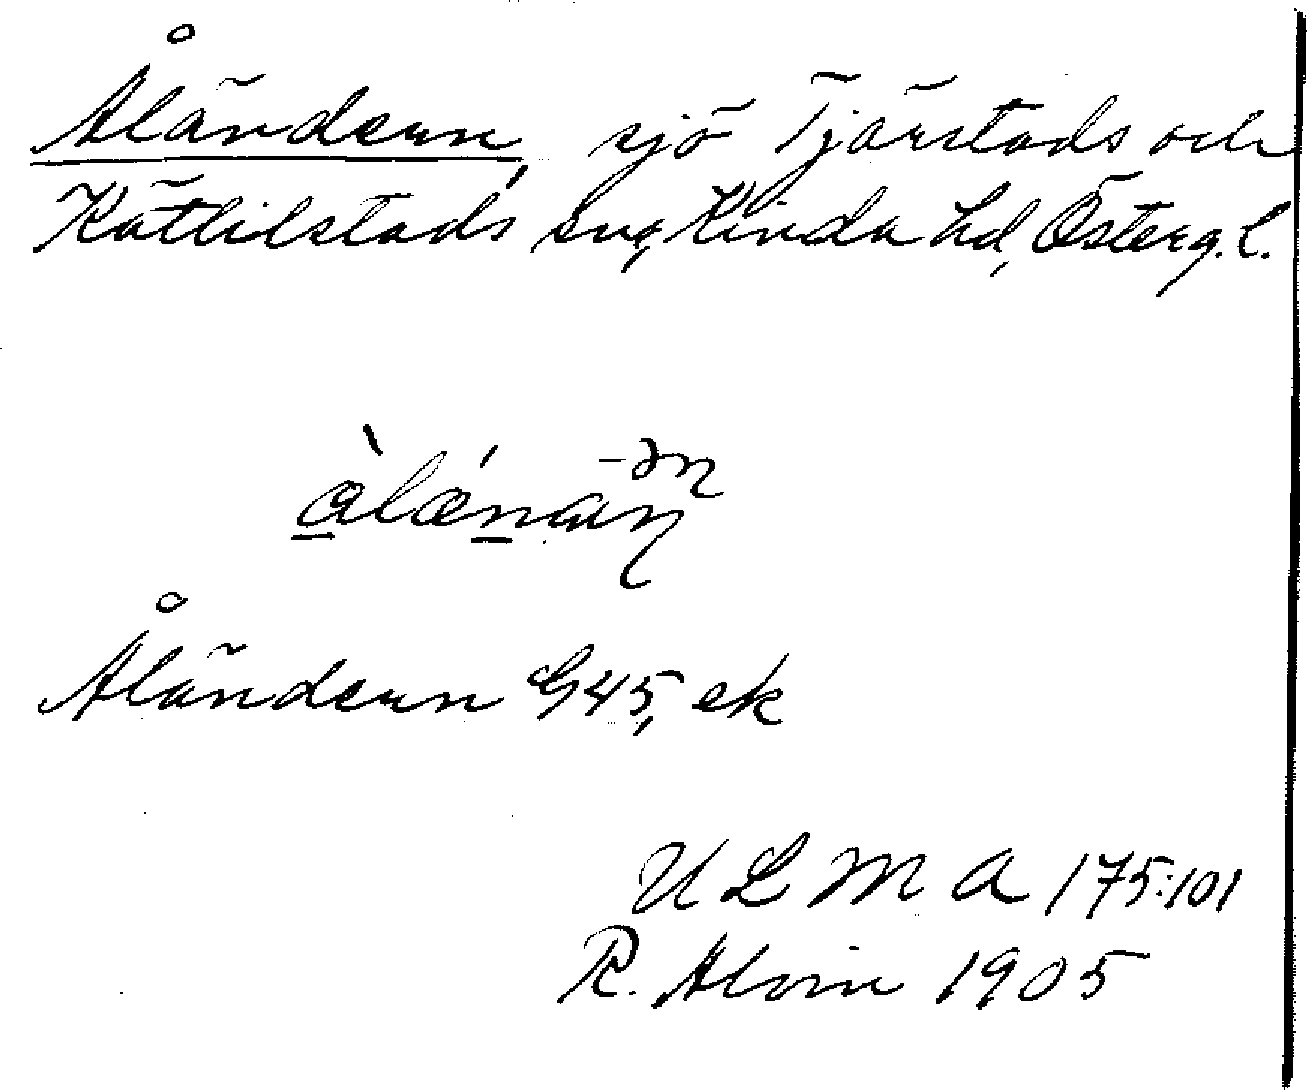 Åländern, sjö Tjärstads och
Kättilstads snr, Kinda hd, Österg. l.
-ən
àlǽnaṇ
Åländern G45, ek
ULMA 175:101
R. Alvin 1905